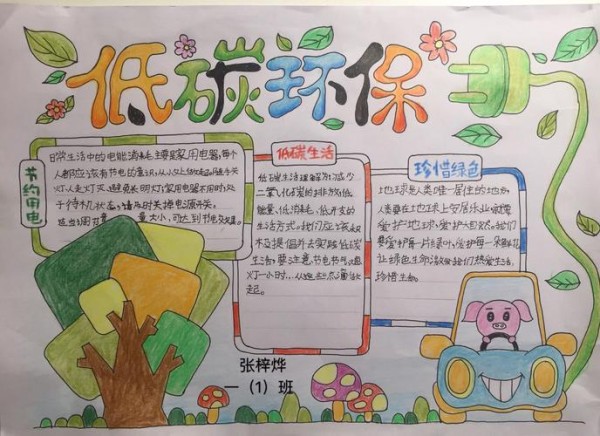 低碳环保
节约用电
日常生活中的电能消耗主要是家用电器,每个
人都应该有节电的意识,从小处做起随手关
灯人走灯灭、避免长明灯;家用电器不用时处
于待机状态,请及时关掉电源开关。
量大小,可达到节电效果。
低碳生活
低碳生活理解为减少
二氧化碳的排放低
能量、低消耗、低开支的
生活方式。我们应该积
极提倡并去实践低碳
生活,要注意节电节气
灯一小时…从这些点滴做
起。
珍惜绿色
地球是人类唯一居住的地方
人类要在地球上安居乐业就要
爱护地球,爱护大自然。我们
要爱护每一片绿叶,爱护每一朵鲜花
让绿色生命激发我们热爱生活,
珍惜生命。
张梓烨
一(1)班